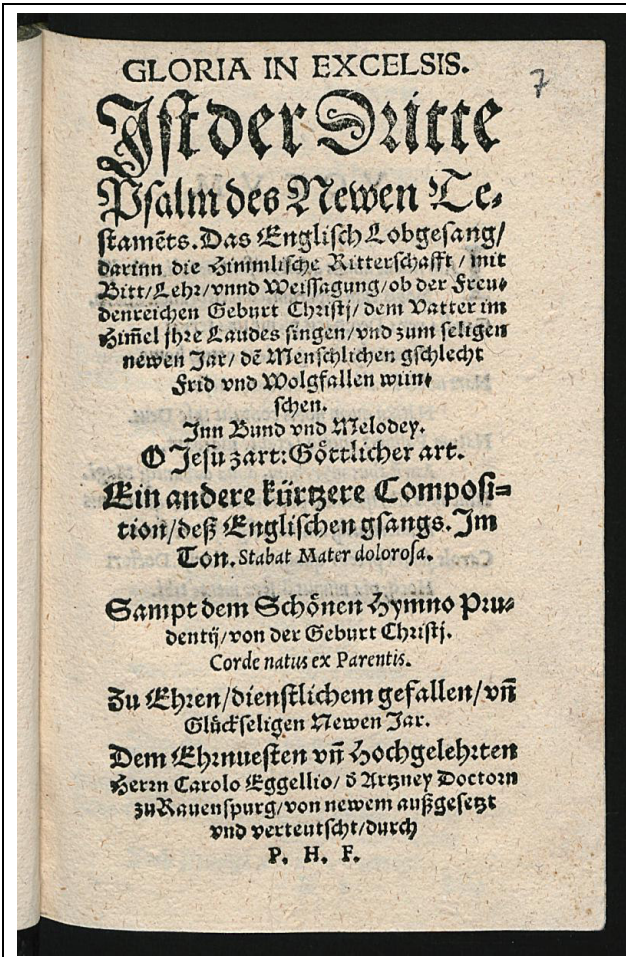 GLORIA IN EXCELSIS.
7
Ist der Dritte
Psalm des Newen Te⸗
stamẽts. Das Englisch Lobgesang/
darinn die Himmlische Ritterschafft/ mit
Bitt/Lehr/vnnd Weissagung/ob der Freu⸗
denreichen Geburt Christj/ dem Vatter im
Him̃el jhre Laudes singen/vnd zum seligen
newen Jar/ dẽ Menschlichen gschlecht
Frid vnd Wolgfallen wün⸗
schen.
Inn Bund vnd Melodey.
O Jesu zart: Göttlicher art.
Ein andere kürtzere Composi⸗
tion/deß Englischen gsangs. Im
Ton. Stabat Mater dolorosa.
Sampt dem Schönen Hymno Pru⸗
dentij/von der Geburt Christj.
Corde natus ex Parentis.
Zu Ehren/dienstlichem gefallen/vn̄
Glückseligen Newen Jar.
Dem Ehrnuesten vn̄ Hochgelehrten
Herrn Carolo Eggellio/ d̄ Artzney Doctorn
zu Rauenspurg/von newem außgesetzt
vnd verteutscht/durch
P. H. F.